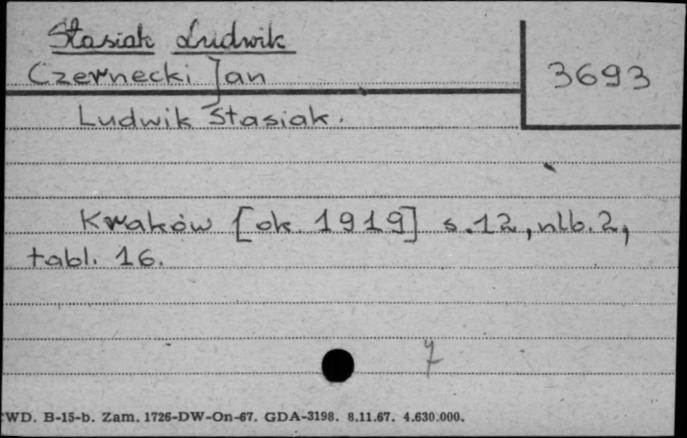 Stasiak Ludwik
Czernecki Jan
3693
Ludwik Stasiak.
Kraków [ok. 1919] s.12, nlb.2,
tabl. 16.
7
WD. B-15-b. Zam. 1726-DW-On-67. GDA-3198. 8.11.67. 4.630.000.